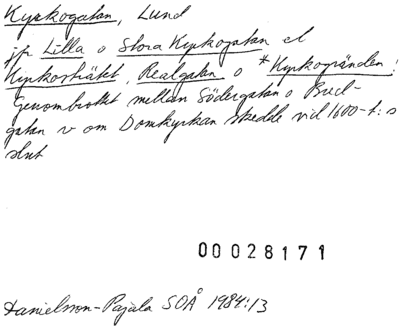 Kyrkogatan, Lund
jfr Lilla o Stora Kyrkogatan el
Kyrkosträtet, Realgatan o *Kyrkogränden!
Genombrottet mellan Södergatan o Bred-
gatan v om Domkyrkan skedde vid 1600-t:s
slut
00028171
Danielsson-Pajala SOÅ 1984:13